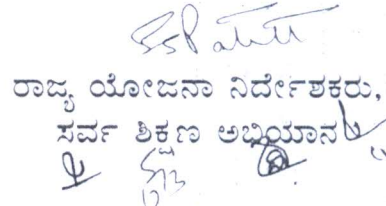 ರಾಜ್ಯ ಯೋಜನಾ ನಿರ್ದೇಶಕರು,
ಸರ್ವ ಶಿಕ್ಷಣ ಅಭಿಯಾನ